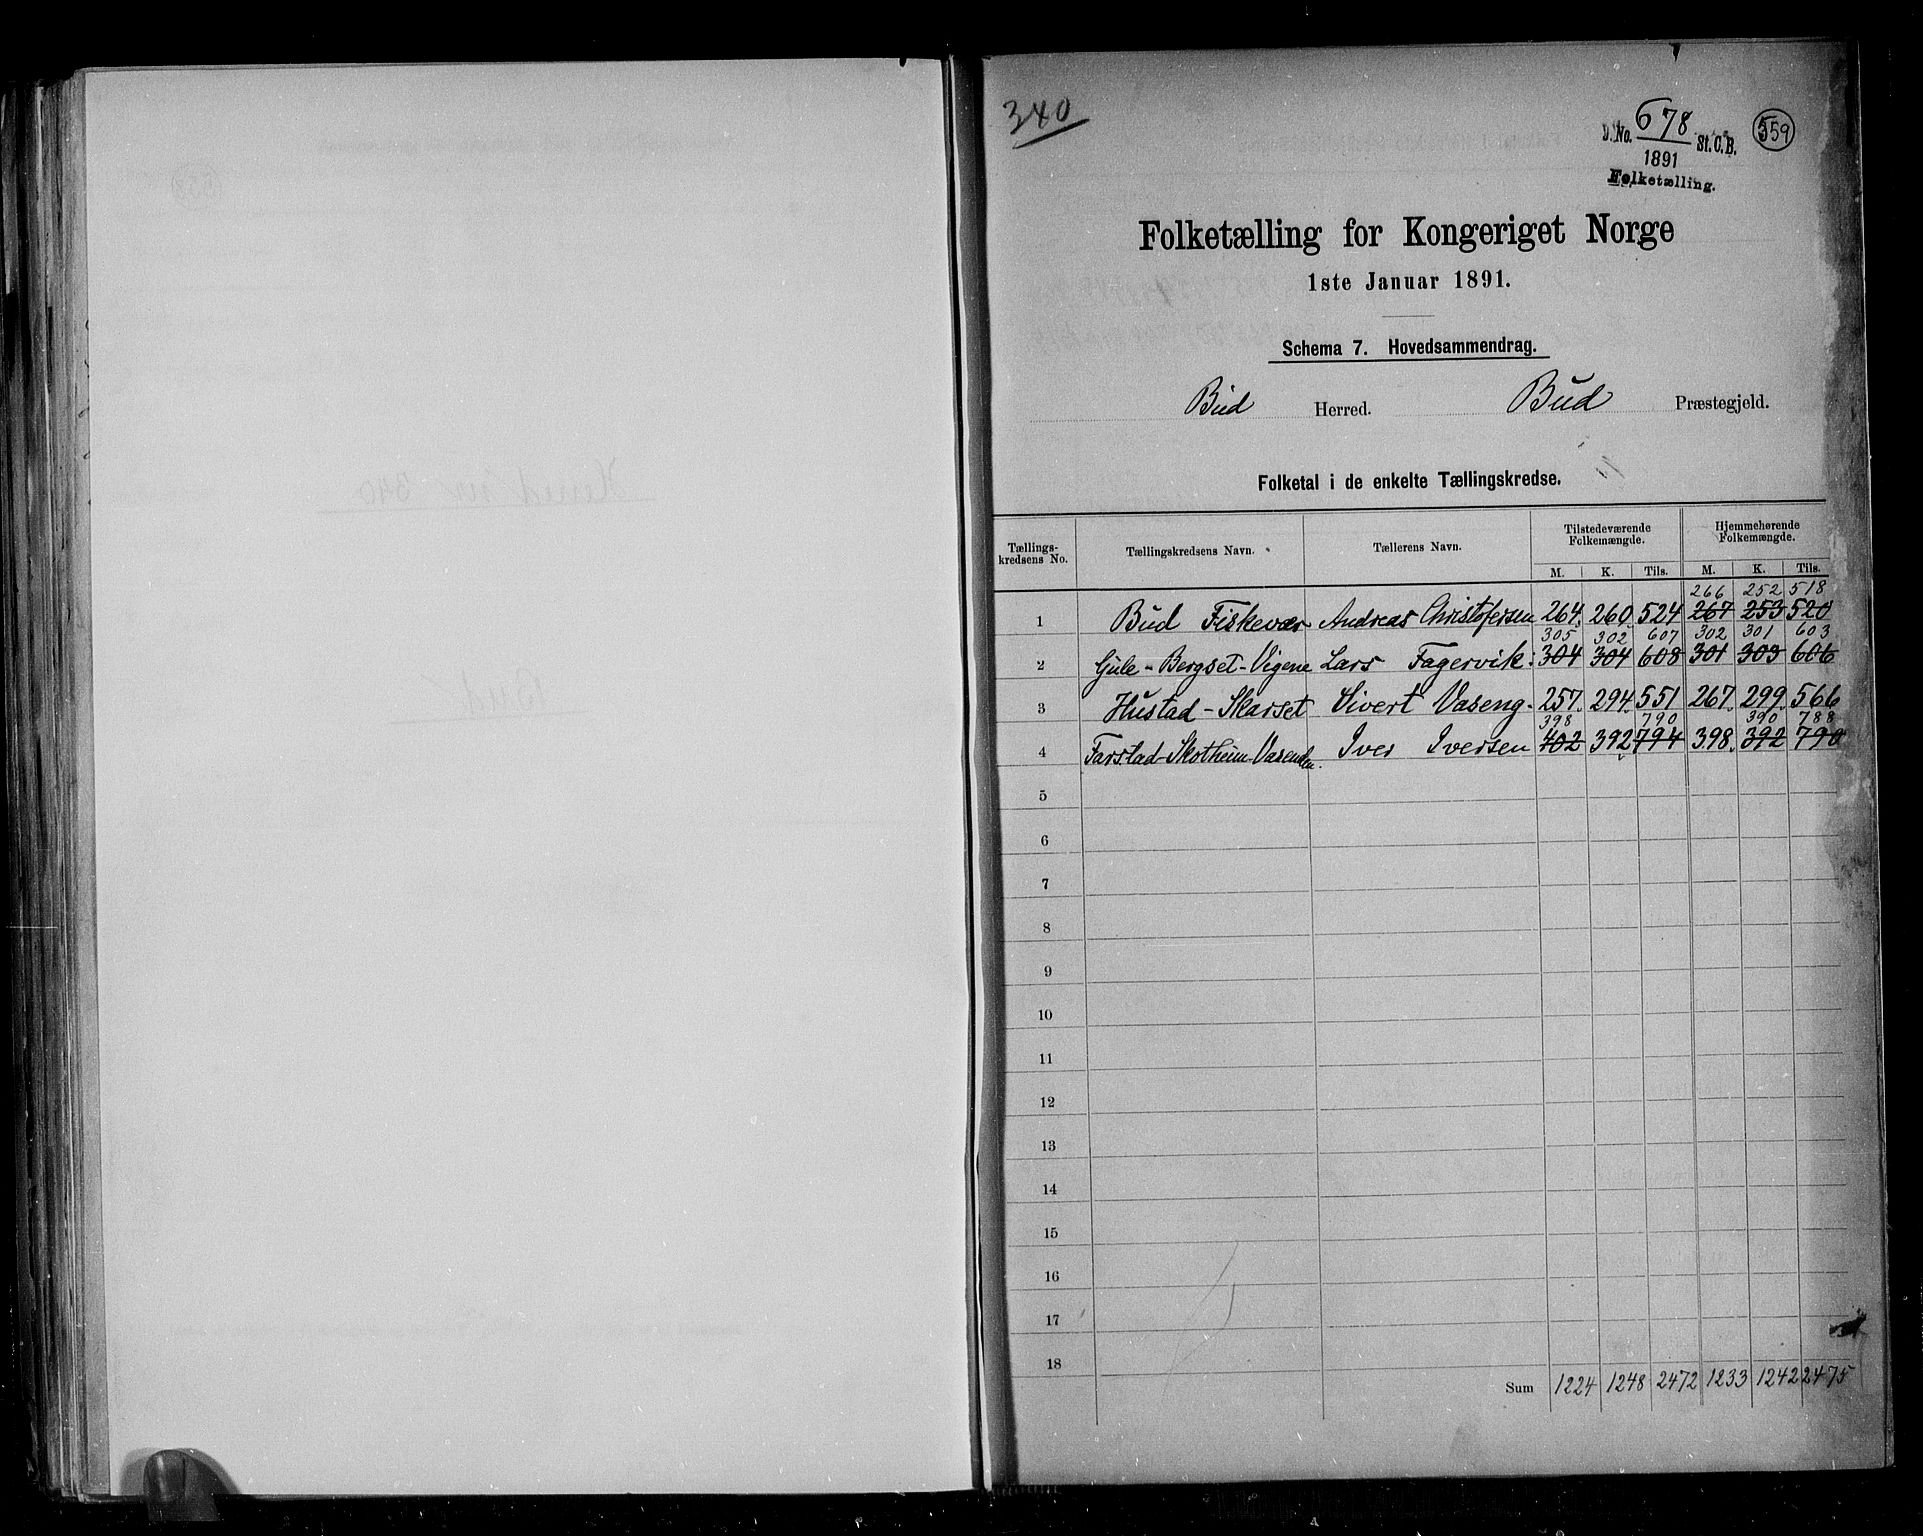 340
D. No. 678 St. C. B. 359
1891
Folketælling.
Folketælling for Kongeriget Norge
1ste Januar 1891.
Schema 7. Hovedsammendrag.
Bud Herred. Bud Præstegjeld.
Folketal i de enkelte Tællingskredse.
Tællings-kredsens No. Tællingskredsens Navn. Tællerens Navn. Tilstedeværende Folkemængde. Hjemmehørende Folkemængde.
M. K. Tils. M. K. Tils.
266 252 518
1 Bud Fiskevær Andreas Christofersen 264. 260. 524 267 253 520
305 302 607 302 301 603
2 Gule-Bergset-Vigene Lars Fagervik: 304 304 608 301 303 606
3 Hustad-Skarset Sivert Vaseng. 257. 294. 551 267. 299. 566
398 790 390 788
4 Farstad-Skotheim-Vasenden. Iver Iversen 402 392 794 398. 392 790
5
6
7
8
9
10
11
12
13
14
15
16
17
18
Sum 1224 1248 2472 1233 1242 2475